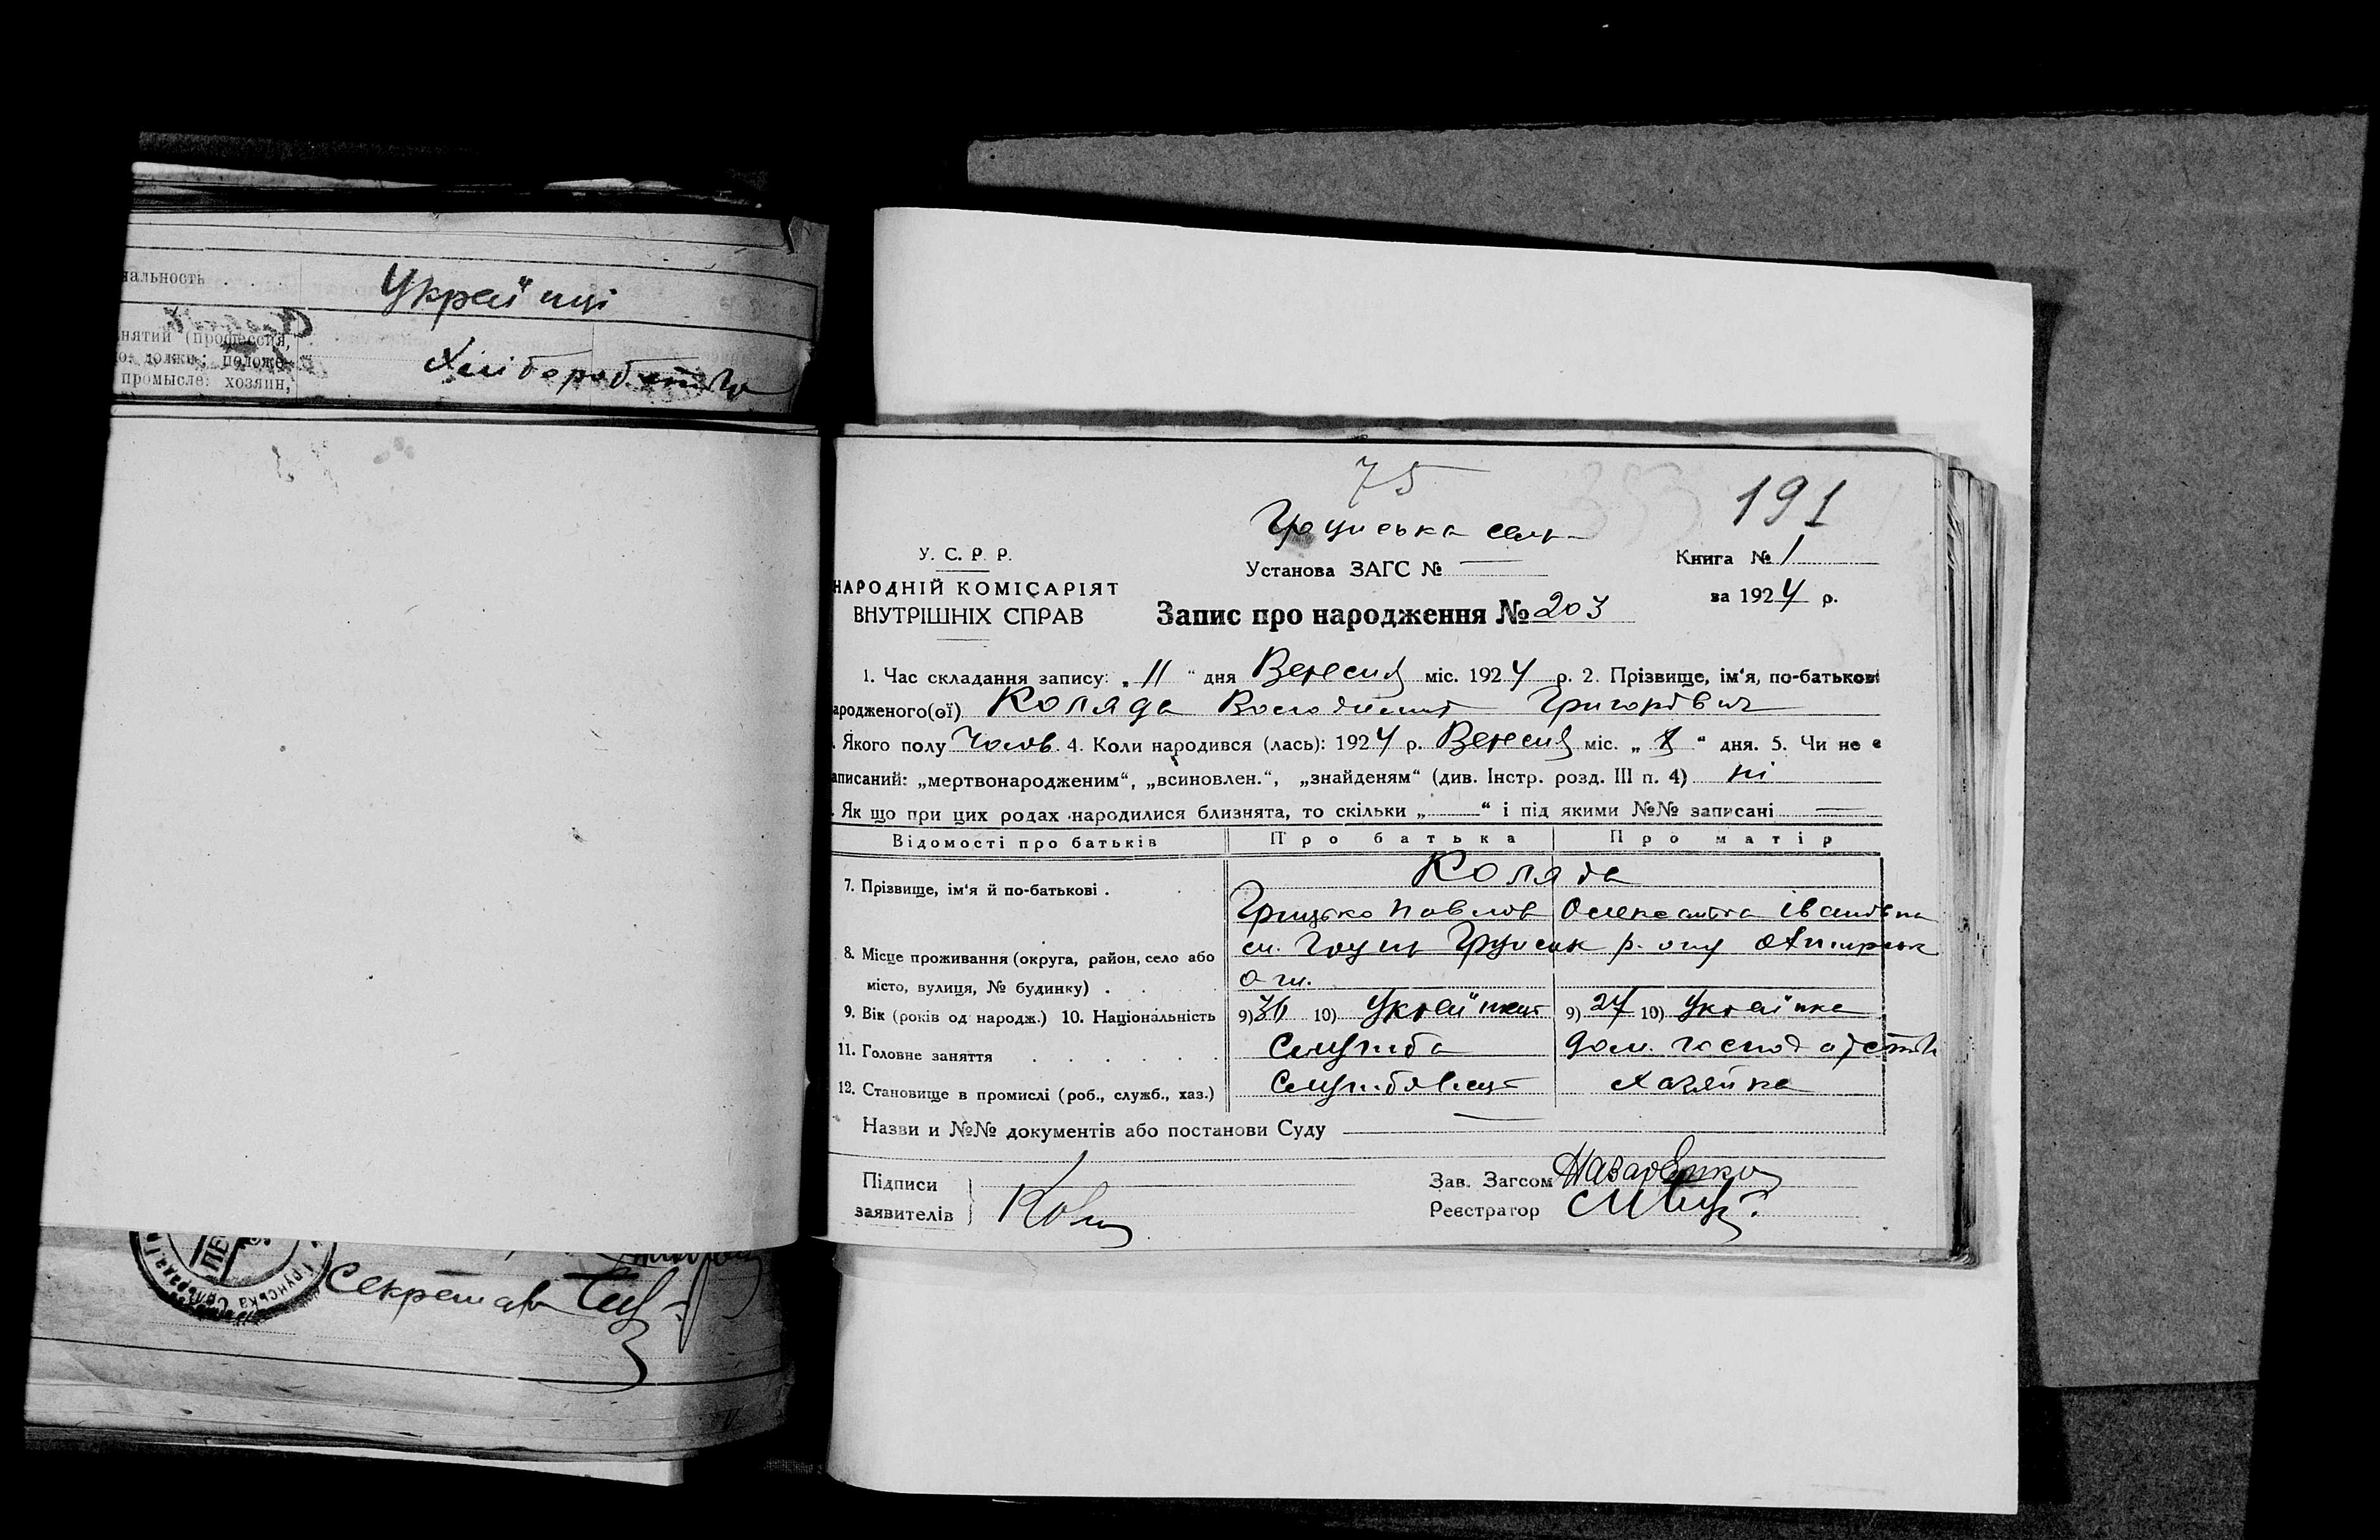 нальность . .
Украïнці
нятий (профессия,
долж.; положе-
промысле: хозяин,
Хліборобство
Секретар
75
191
Грунська сель-
У. С. Р. Р.
Установа ЗАГС №
Книга № 1
НАРОДНІЙ КОМІСАРІЯТ
за 1924 р.
ВНУТРІШНІХ СПРАВ
Запис про народження № 203
1. Час складання запису: „ 11 “ дня Вересня міс. 1924 р. 2. Прізвище, ім'я, по-батькові
ародженого(ої) Коляда Володимир Григорович
. Якого полу Чолов. 4. Коли народився (лась): 1924 р. Вересня міс. „ “ дня. 5. Чи не є
аписаний: „мертвонародженим“, „всиновлен.“, „знайденям“ (див. Інстр. розд. III п. 4) ні
. Як що при цих родах народилися близнята, то скільки „ “ і під якими №№ записані
Відомості про батьків Про батька Про матір
Коляда
7. Прізвище, ім'я й по-батькові .
Грицько Павлов Олександра Івановна
8. Місце проживання (округа, район, село або
с. Грунь Грунськ р-ону Охтирськ
місто, вулиця, № будинку) .
окр.
9. Вік (років од народж.) 10. Національність 9) 36 10) Украïнець 9) 27 10) Украïнка
11. Головне заняття Служба Дом. господарств
12. Становище в промислі (роб., служб., хаз.) Службовець Хазяйка
Назви и №№ документів або постанови Суду
Підписи
Зав. Загсом Назаренко
заявителів
Реєстратор